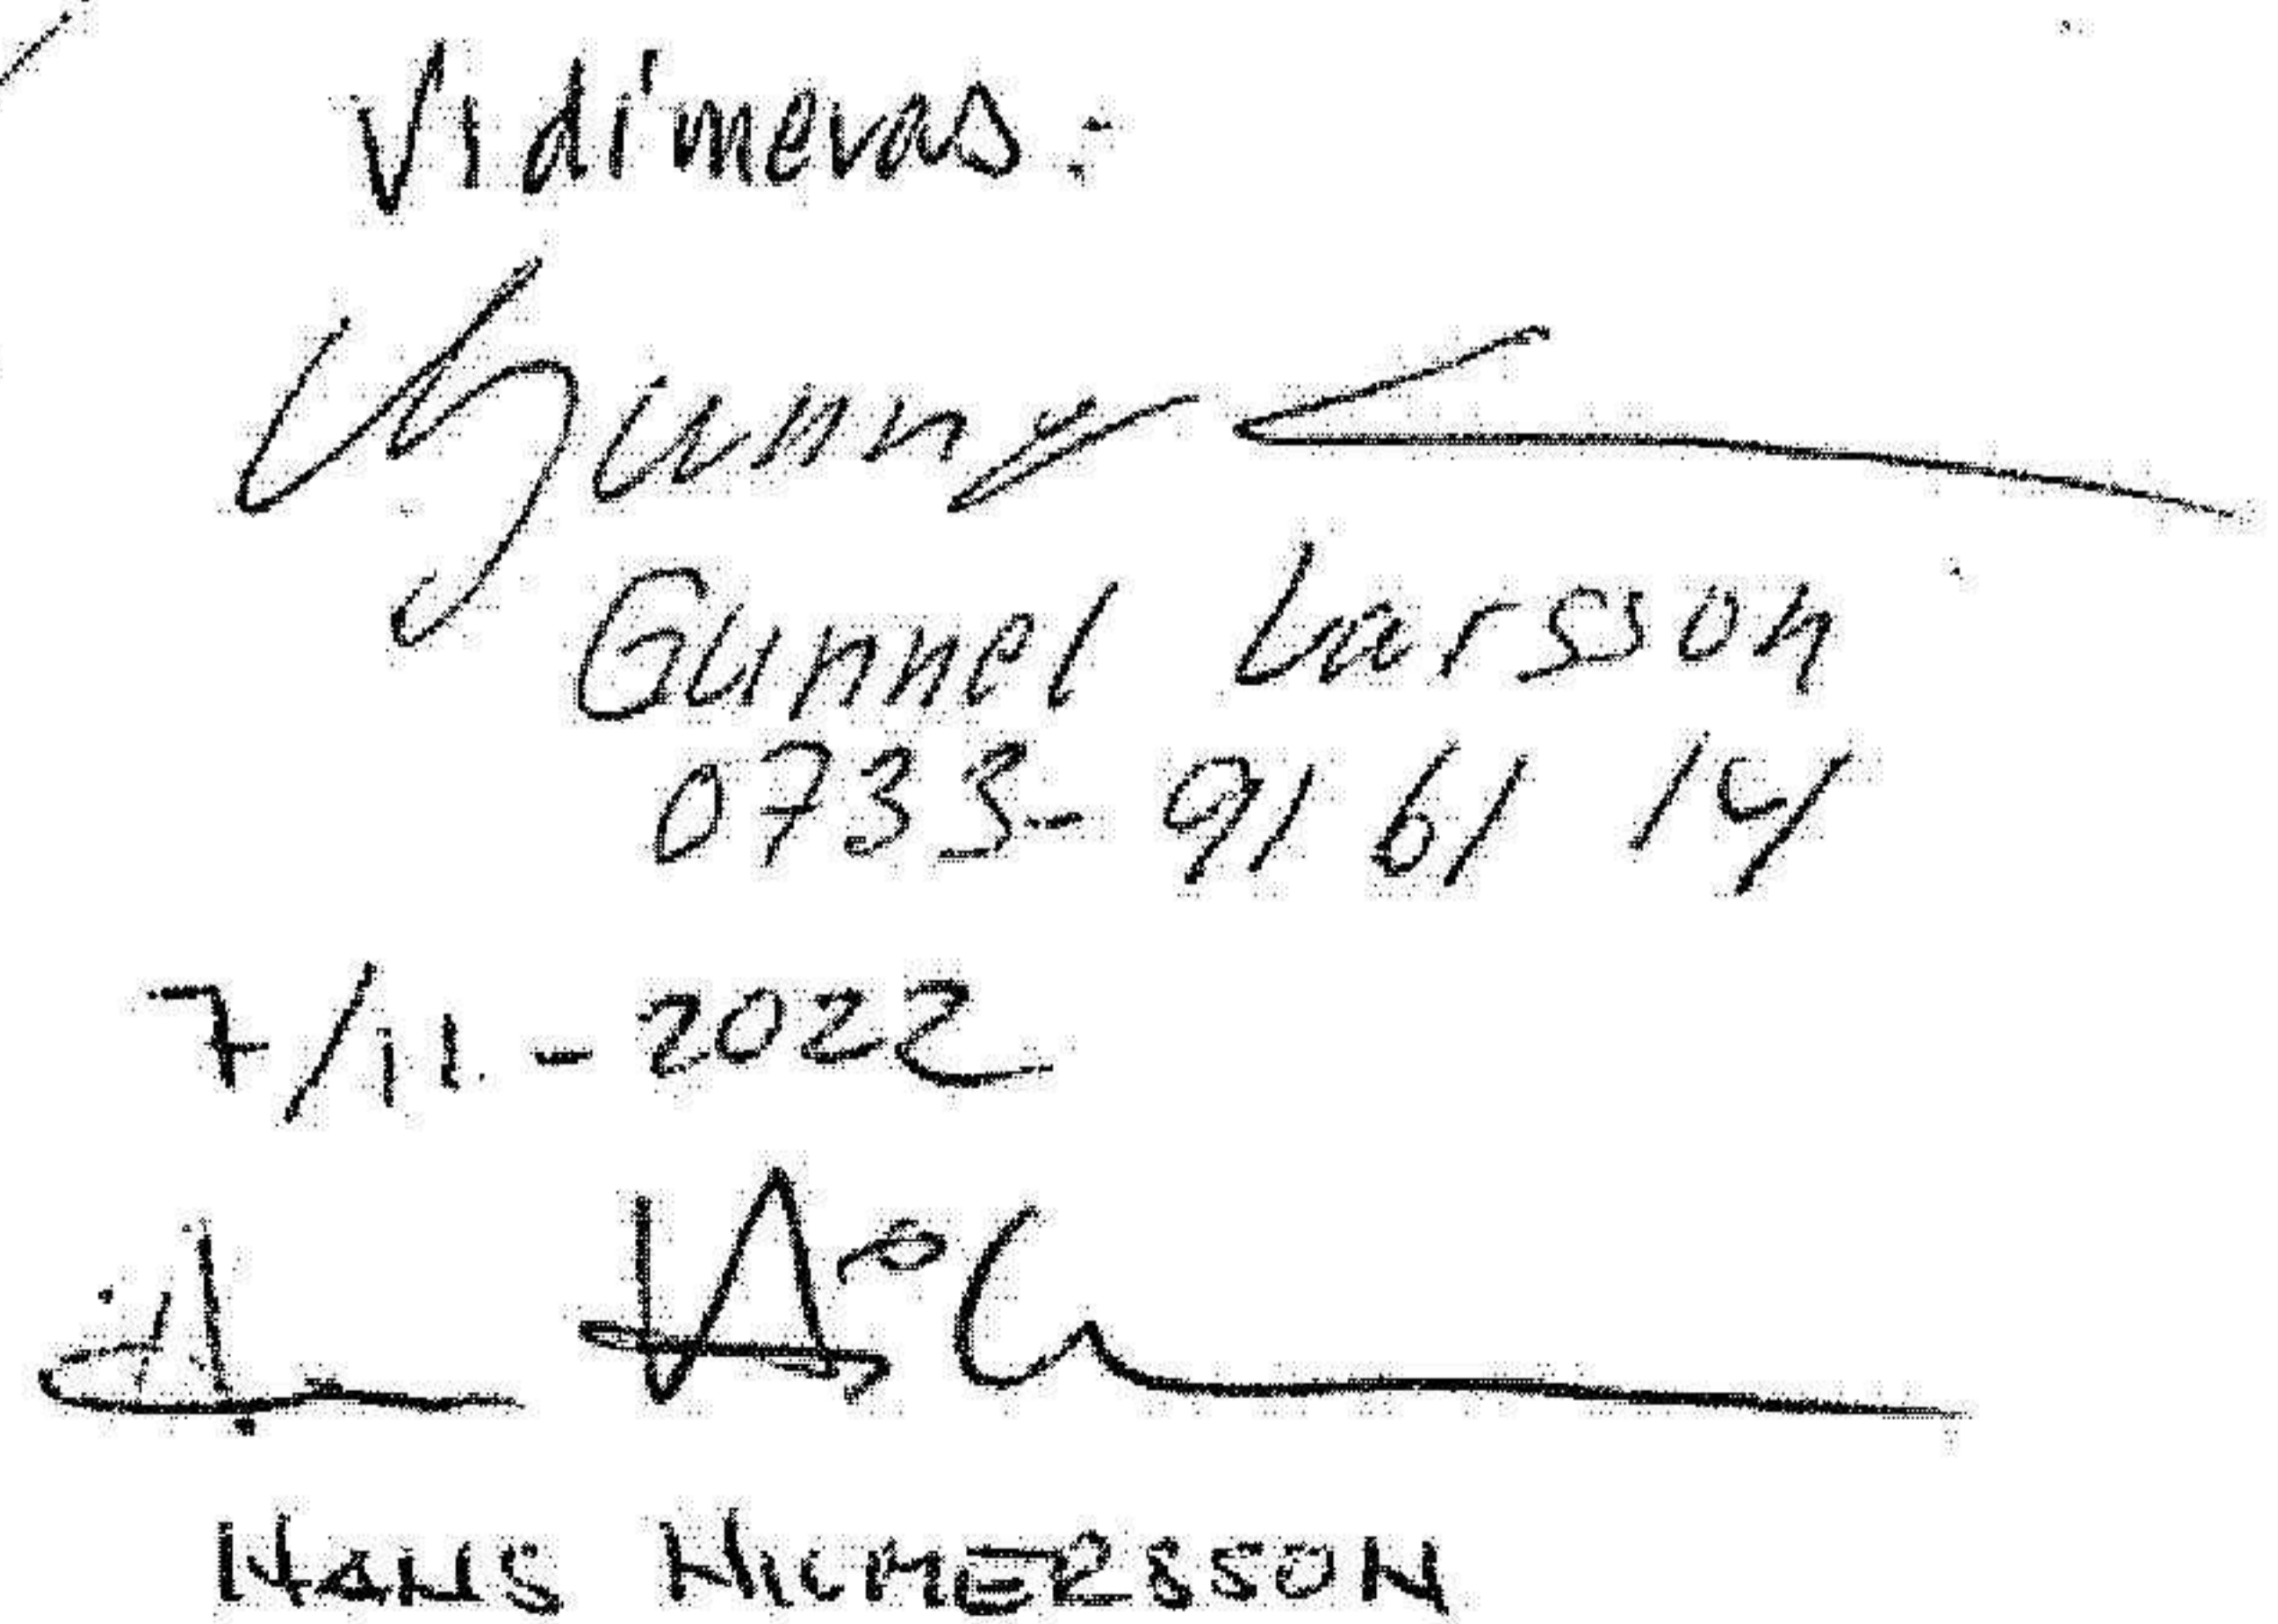 Vidimeras:
Gunnel Larsson
0733-91 61 14
7/11-2022
HANS HILMERSSON